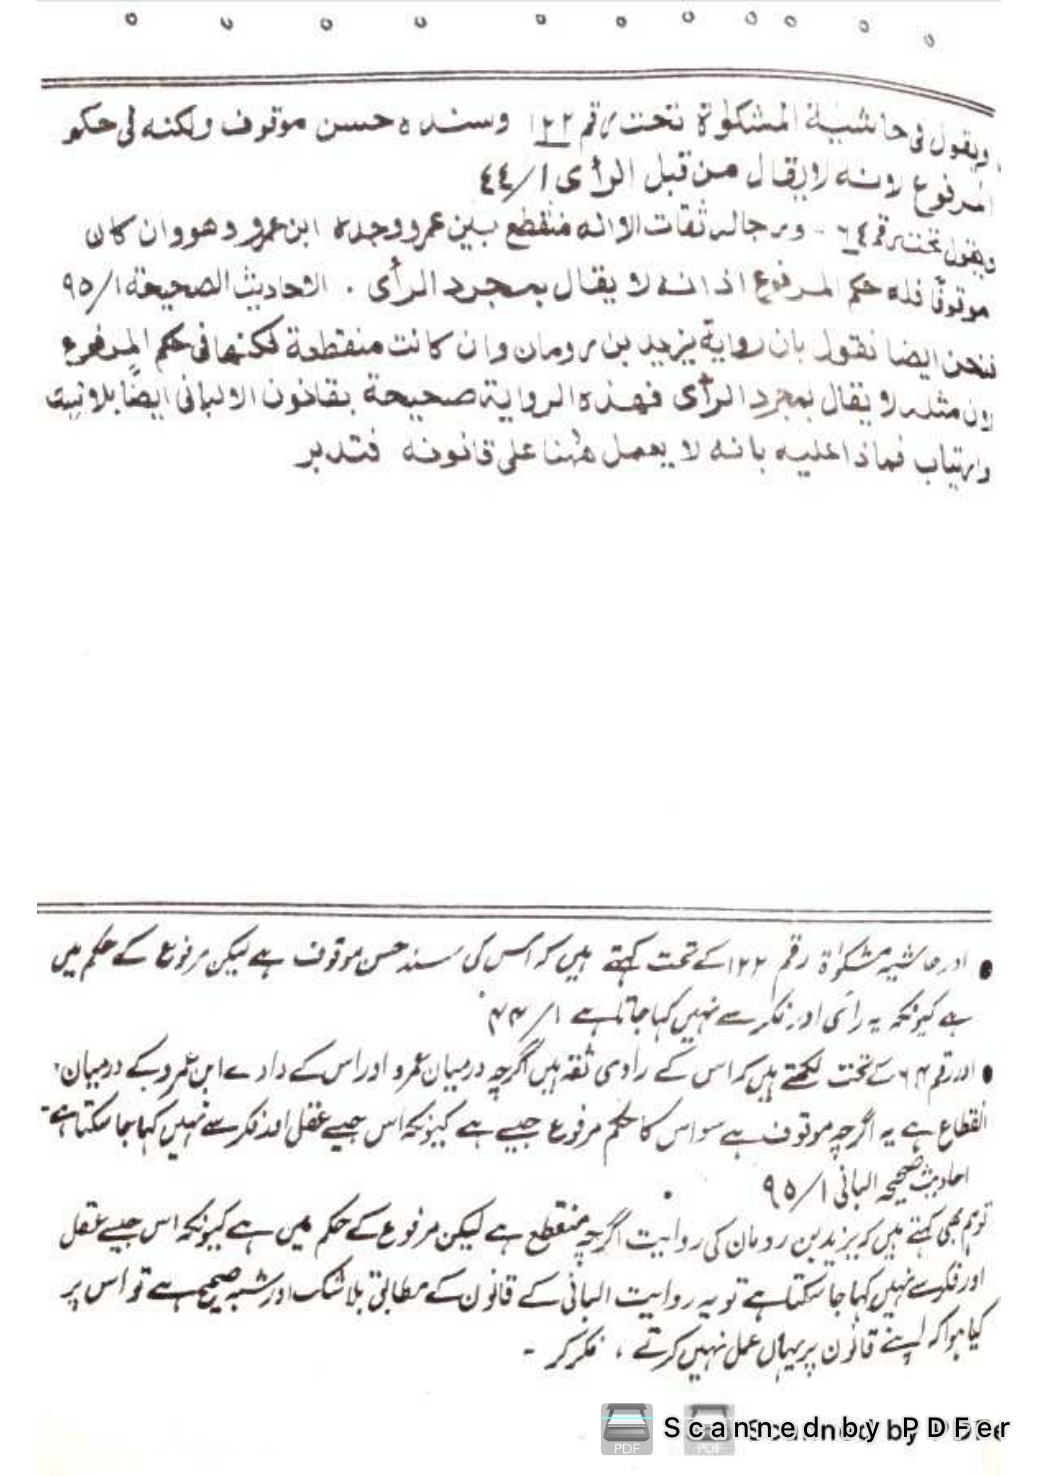 ويقول فى حاشية المشكوٰة تحت رقم ١٢٢ وسنده حسن موقوف ولكنه فى حكم
المرفوع لانه لا يقال من قبل الرأى ١/٤٤
ويقول تحت رقم ٦٤ - ورجاله ثقات الا انه منقطع بين عمرو وجده ابن عمرو وهو وان كان
موقوفًا فله حكم المرفوع اذ انه لا يقال بمجرد الرأى . الاحاديث الصحيحة ١/٩٥
نحن ايضا نقول بان رواية يزيد بن رومان وان كانت منقطعة لكنها فى حكم المرفوع
لان مثله لا يقال بمجرد الرأى فهذه الرواية صحيحة بقانون الالبانى ايضًا بلا
وارتياب فماذا عليه بانه لا يعمل ههنا على قانونه فتدبر
● اور حاشیہ مشکوٰۃ رقم ۱۲۲ کے تحت کہتے ہیں کہ اس کی سند حسن موقوف ہے لیکن مرفوع کے حکم میں
ہے کیونکہ یہ رائی اور فکر سے نہیں کہا جاتا ہے ۱/۴۴
● اور رقم ۶۴ کے تحت لکھتے ہیں کہ اس کے راوی ثقہ ہیں اگرچہ درمیان عمرو اور اس کے دادے ابن عمرو کے درمیان
انقطاع ہے یہ اگرچہ موقوف ہے سو اس کا حکم مرفوع جیسے ہے کیونکہ اس جیسے عقل اور فکر سے نہیں کہا جا سکتا ہے۔
احادیث صحیحہ البانی ۱/۹۵
تو ہم بھی کہتے ہیں کہ یزید بن رومان کی روایت اگرچہ منقطع ہے لیکن مرفوع کے حکم میں ہے کیونکہ اس جیسے عقل
اور فکر سے نہیں کہا جا سکتا ہے تو یہ روایت البانی کے قانون کے مطابق بلا شک اور شبہ صحیح ہے تو اس پر
کیا ہوا کہ اپنے قانون پر یہاں عمل نہیں کرتے ، فکر کر -
Scanned by PDFer
Scanned by PDFe